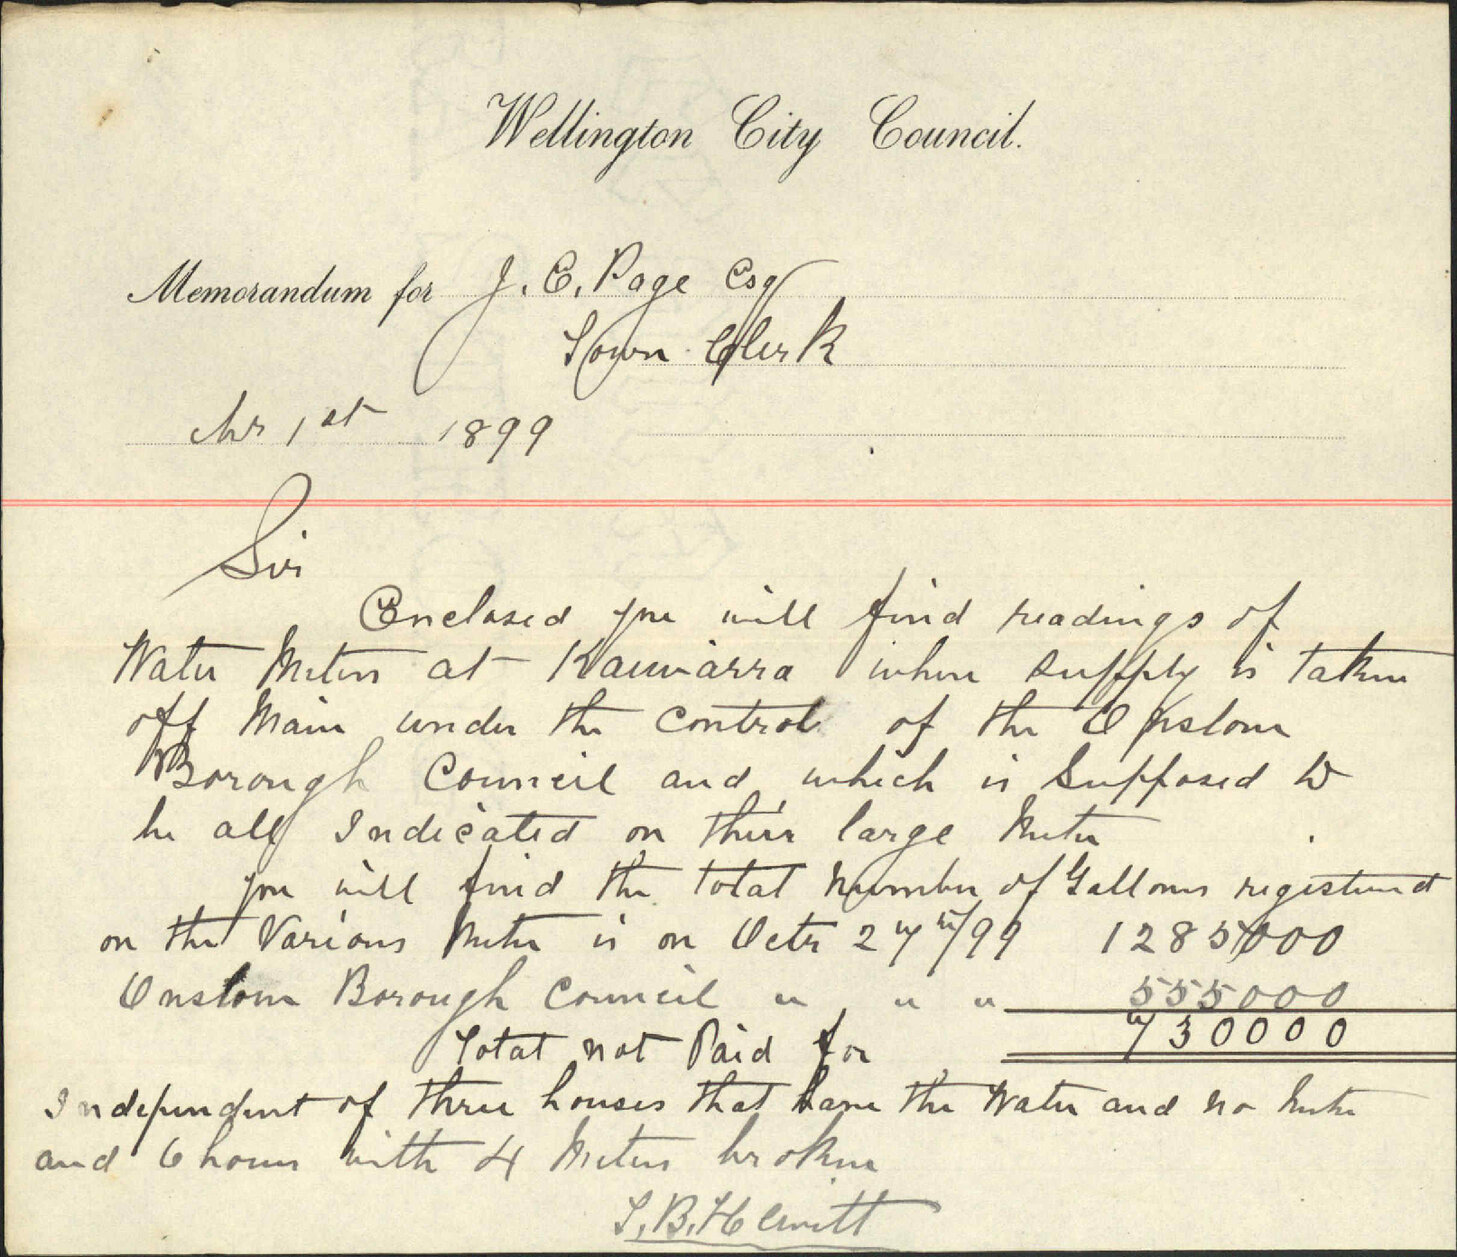 Wellington City Council.
Memorandum for J. E. Page Esq
Town Clerk
Nvr 1st 1899
Sir
Enclosed you will find readings of
Water Meters at Kaiwarra where supply is taken
off Main under the control of the Onslow
Borough Council and which is Supposed to
be all Indicated on their large Meter
you will find the total number of Gallons registered
on the Various Meter is on Octr 27th/99 1285000
Onslow Borough Council " " " 555000
Total not Paid for 730000
Independent of three houses that have the Water and no Meter
and 6 houses with 4 Meters broken
T. B. Hewitt